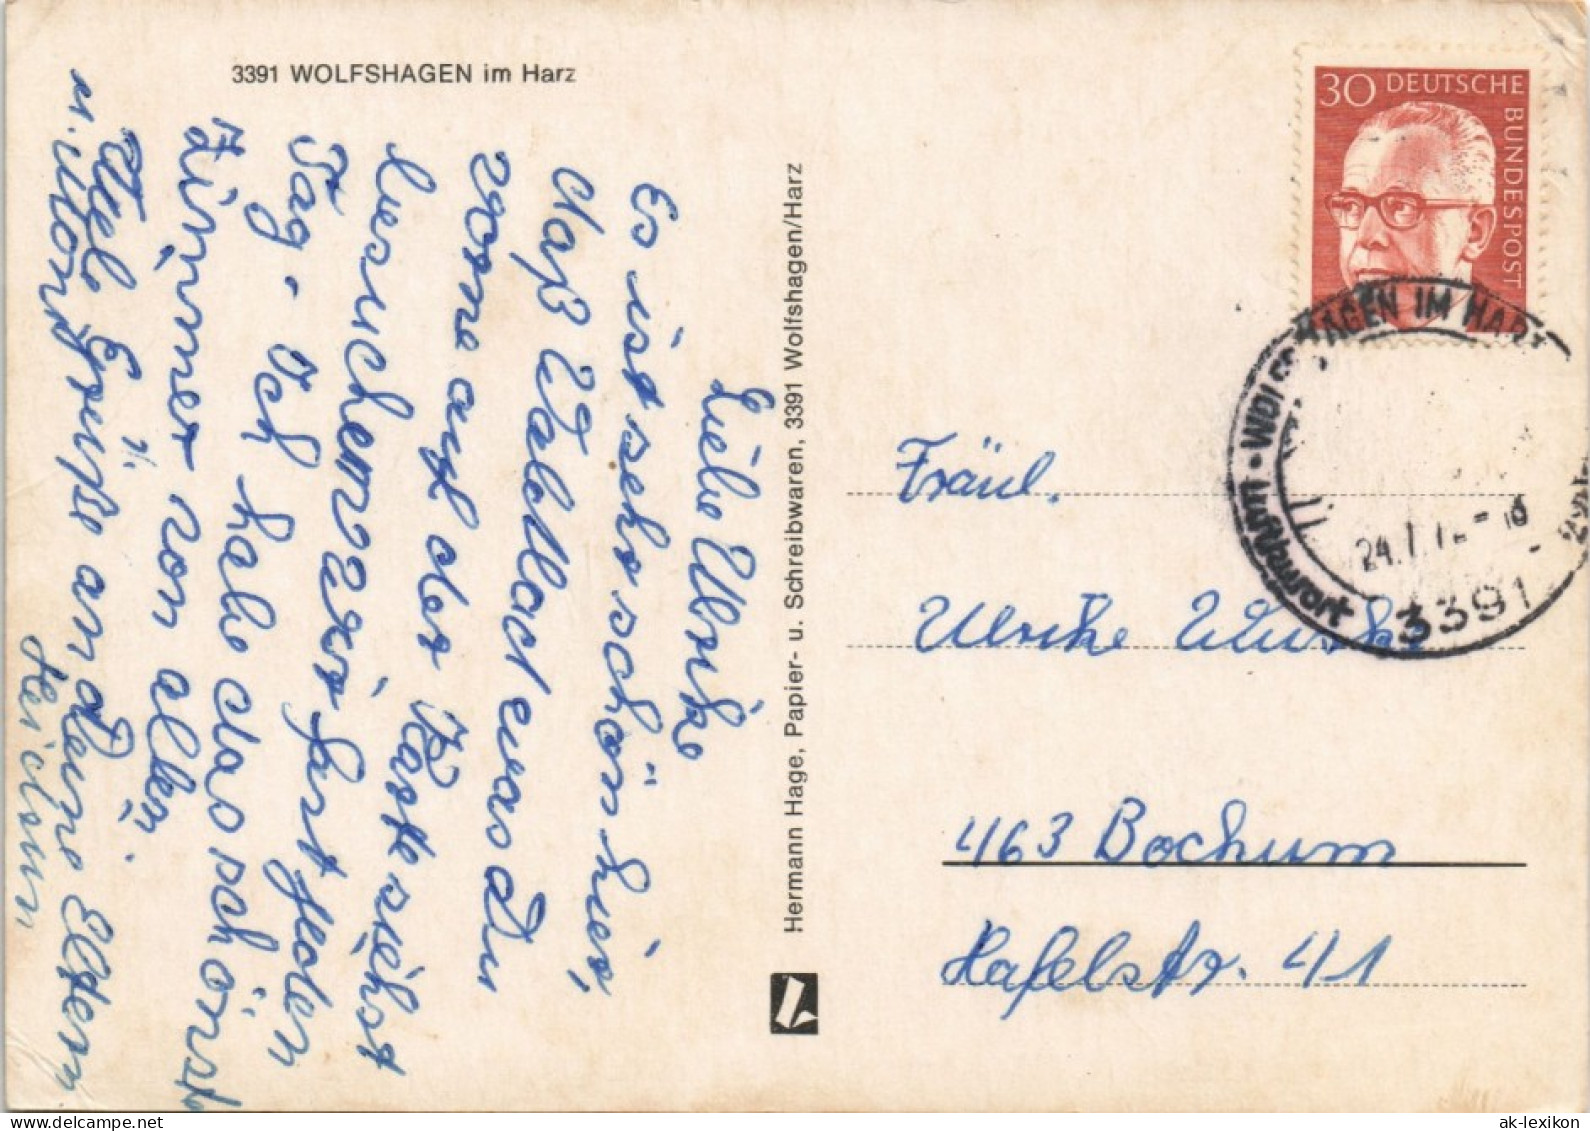 3391 WOLFSHAGEN im Harz
Liebe Ulrike
Es ist sehr schön hier,
daß Waldbad was du
vorne auf der Karte siehst
besuchen wir fast jeden
Tag. Ich habe das schönste
Zimmer von allen.
Viel Grüße an deine Eltern
u.
Heidrun
Hermann Hage, Papier- u. Schreibwaren, 3391 Wolfshagen/Harz
30 DEUTSCHE
BUNDESPOST
WOLFSHAGEN IM HARZ
Luftkurort
24.
3391
Fräul.
Ulrike
463 Bochum
Hafelstr. 41
ak-lexikon